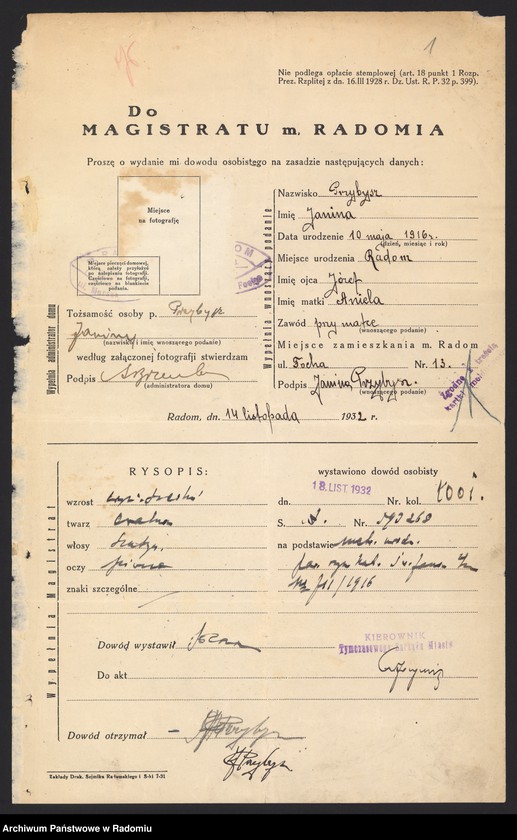 1
Nie podlega opłacie stemplowej (art. 18 punkt 1 Rozp.
Prez. Rzplitej z dn. 16.III 1928 r. Dz. Ust. R. P. 32 p. 399).
Do
MAGISTRATU m. RADOMIA
Proszę o wydanie mi dowodu osobistego na zasadzie następujących danych:
Miejsce
na fotografję
Miejsce pieczęci domowej,
którą należy przyłożyć
po nalepieniu fotografji.
Częściowo na fotografji,
częściowo na blankiecie
podania.
Wypełnia administrator domu
Tożsamość osoby p. Przybysz
Janiny
(nazwisko i imię wnoszącego podanie)
według załączonej fotografji stwierdzam
Podpis
(administratora domu)
Wypełnia wnoszący podanie
Nazwisko Przybysz
Imię Janina
Data urodzenie 10 maja 1916 r.
(dzień, miesiąc i rok)
Miejsce urodzenia Radom
Imię ojca Józef
Imię matki Aniela
Zawód przy matce
(wnoszącego podanie)
Miejsce zamieszkania m. Radom
ul. Focha Nr. 13.
Podpis Janina Przybysz.
(wnoszącego podanie)
Zgodne z
Radom, dn. 14 listopada 1932 r.
Wypełnia Magistrat
RYSOPIS:
wzrost
twarz
włosy
oczy piwne
znaki szczególne
wystawiono dowód osobisty
dn. 18. LIST. 1932 Nr. kol. 1001.
S. Nr. 593268
na podstawie
/1916
Dowód wystawił
Do akt
KIEROWNIK
Tymczasowego Zarządu Miasta
Dowód otrzymał — J Przybysz
J Przybysz
Zakłady Druk. Sejmiku Radomskiego 7-31
Archiwum Państwowe w Radomiu